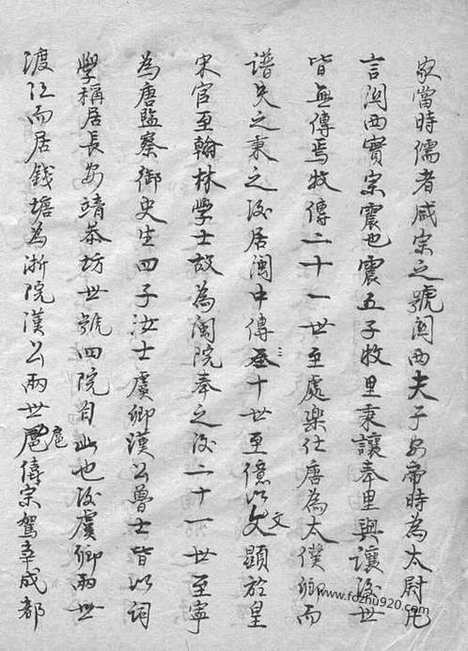 家當時儒者咸宗之號關西夫子安帝時為太尉凡
言関西實宗震也震五子牧里秉讓奉里與讓後世
皆無傳焉牧傳二十一世至處樂仕唐為太僕卿而
譜失之秉之後居閩中傳至十世至億以文顯於皇
文
宋官至翰林學士故為閩院奉之後二十一世至寧
為唐監察御史生四子汝士虞卿漢公魯士皆以詞
學稱居長安靖恭坊世號四院自此也後虞卿兩世
渡江而居錢塘為浙院漢公兩世扈僖宗駕幸成都
扈
www.fozhu920.com